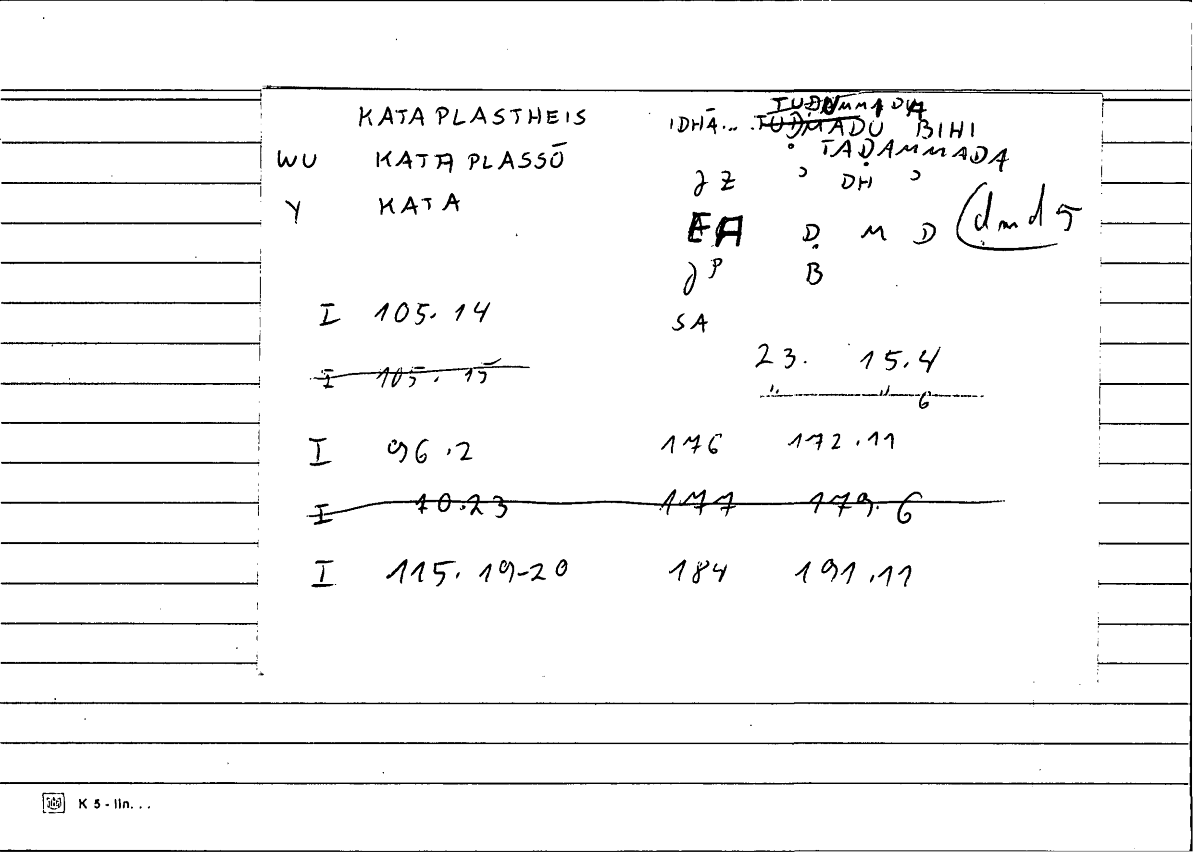 KATAPLASTHEIS IDHĀ... TUḌMADU BIHI
TAḌAMMADA
WU KATAPLASSŌ
∂ Z ' DH '
Y KATA
EA Ḍ M D (ḍmd 5
∂ P B
I 105.14 SA
23. 15.4
I 105.15
" " 6
I 96.2 176 172.11
I 10.23 177 179.6
I 115.19-20 184 191.11
K 5 - lin...